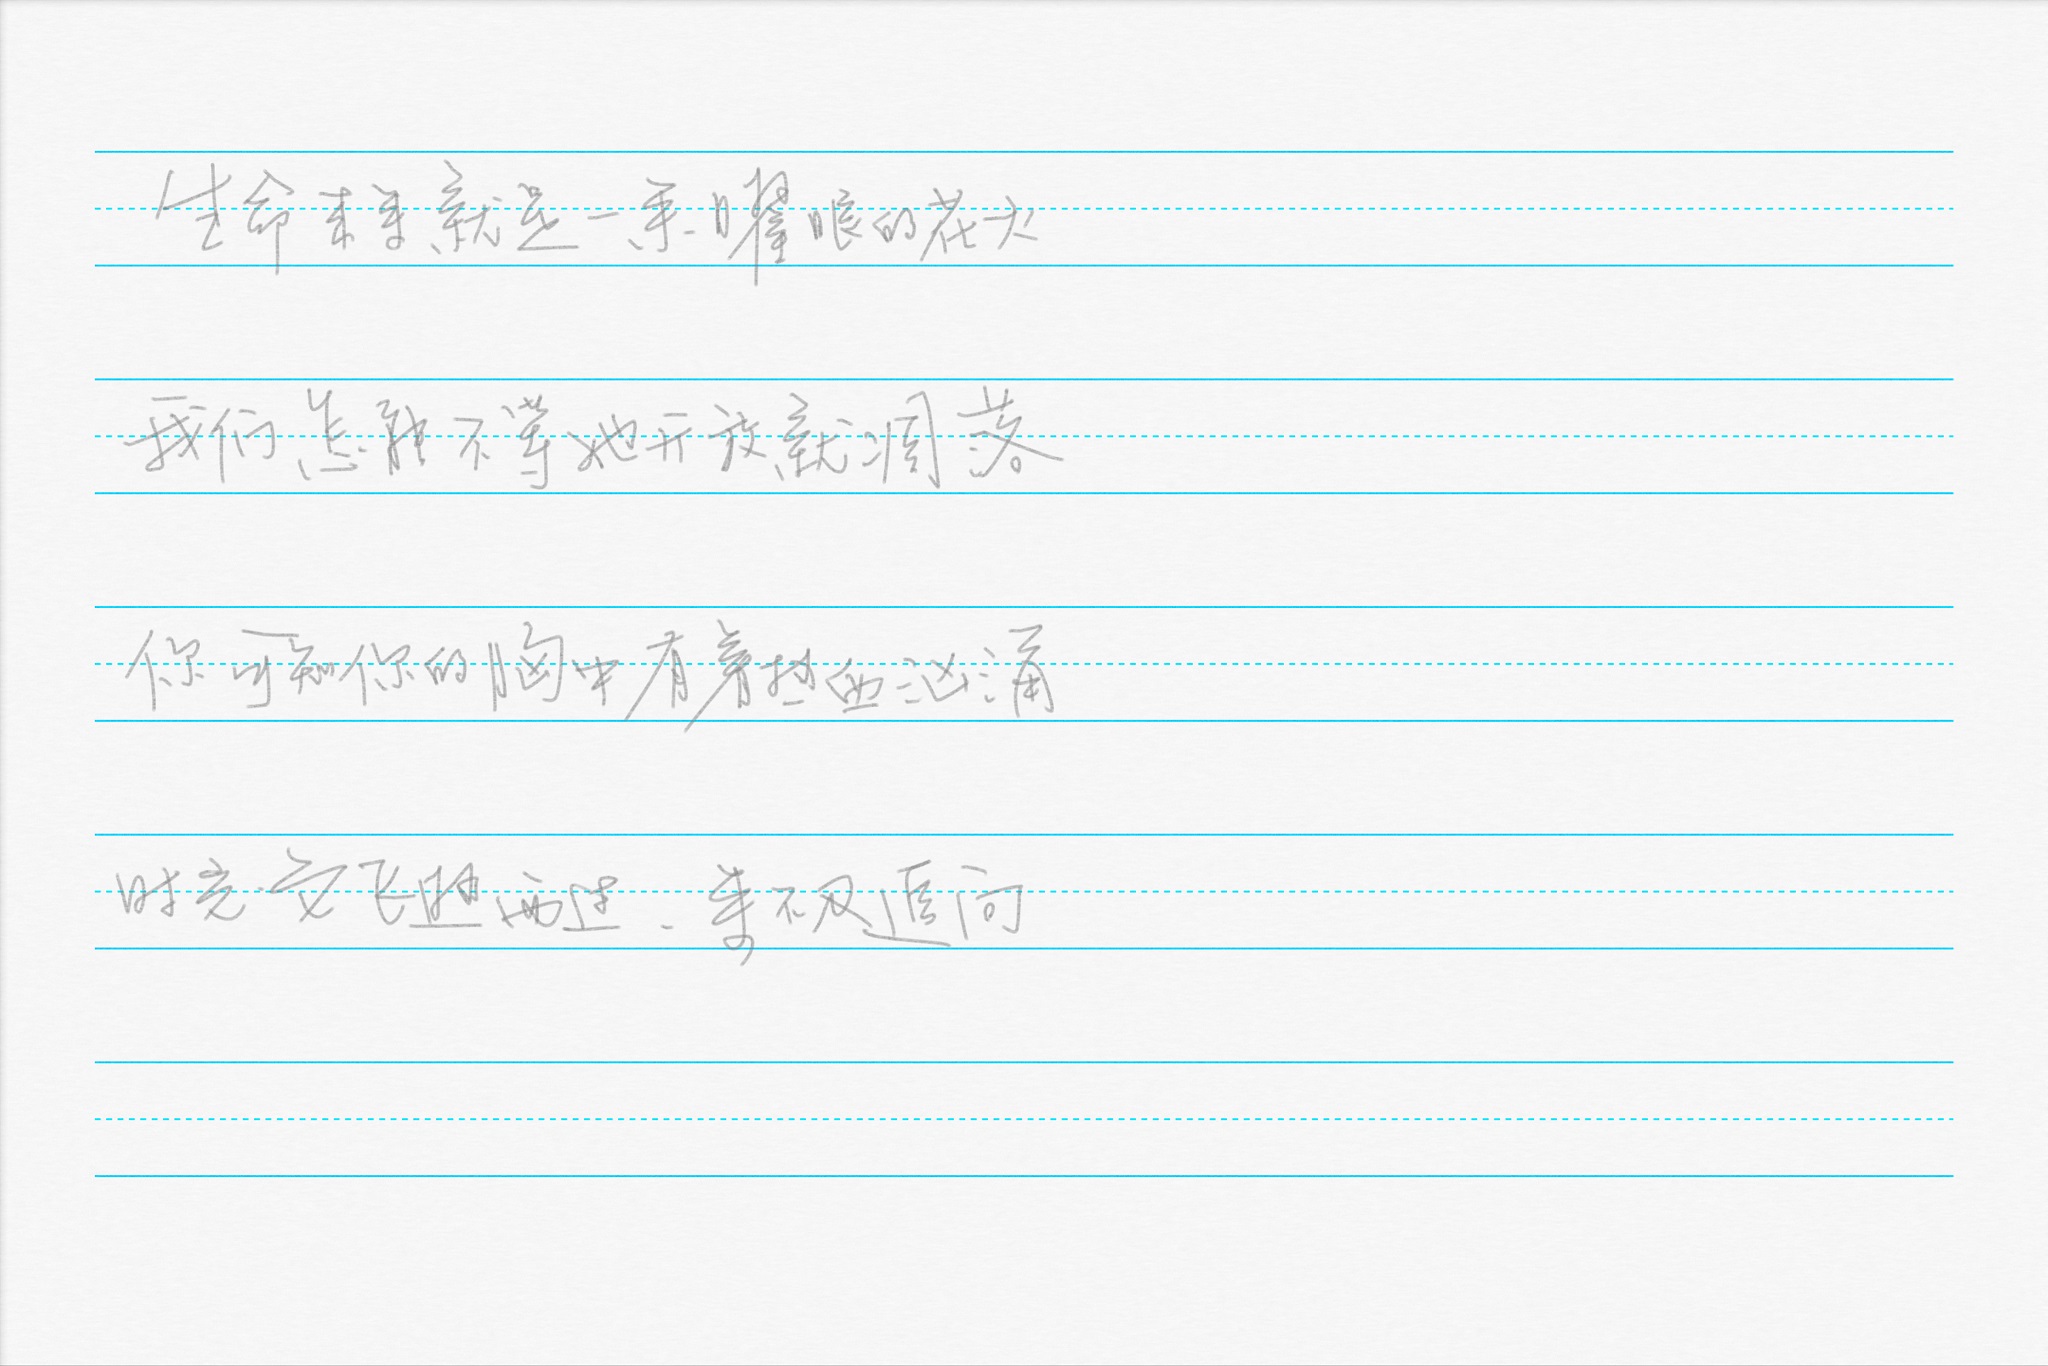 生命本来就是一朵耀眼的花火
我们怎能不等她开放就凋落
你可知你的胸中有着热血汹涌
时光它飞驰而过、来不及追问